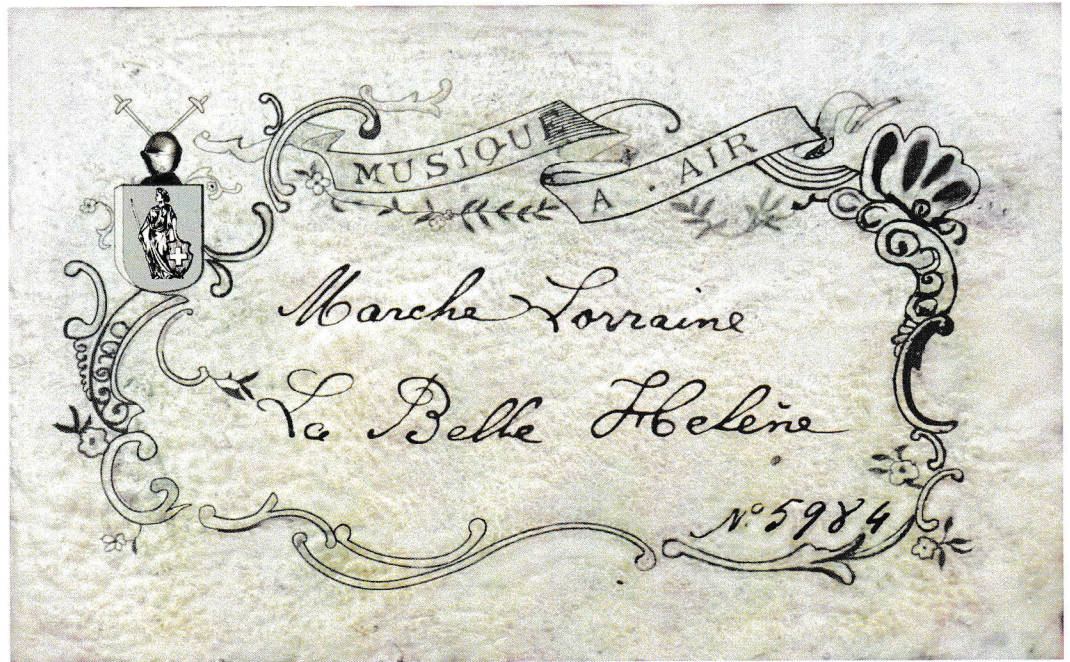 MUSIQUE A · AIR
Marche Lorraine
La Belle Helène
Nº 5984